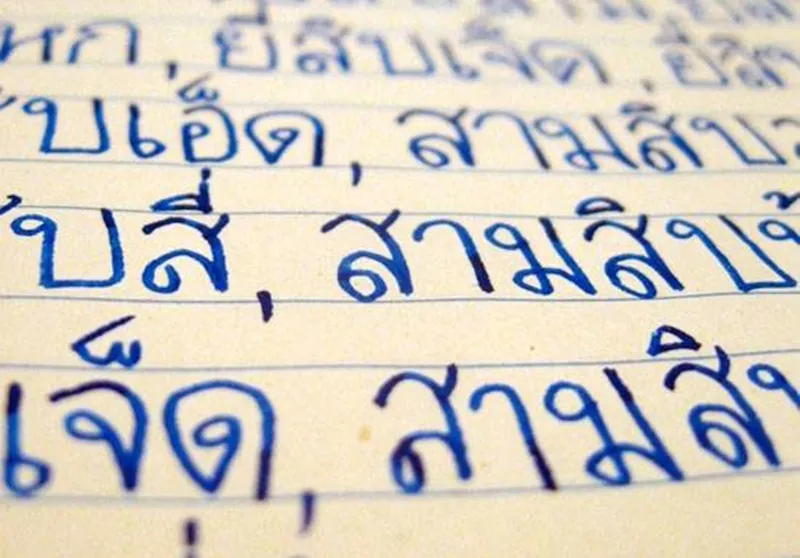 หก, ยี่สิบเจ็ด, ยี่สิ
บเอ็ด, สามสิบ
บสี่, สามสิบ
เจ็ด, สามสิ